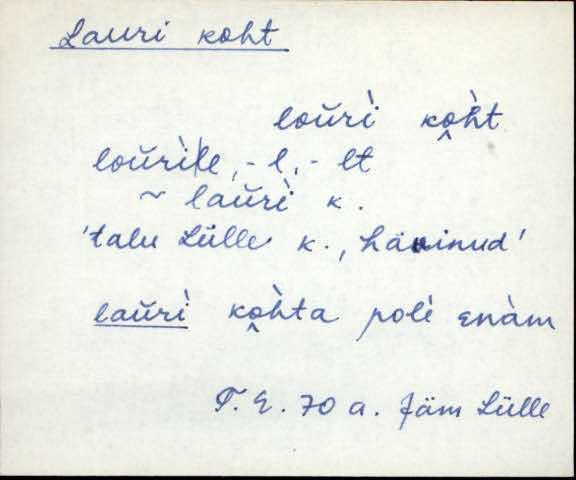 Lauri koht
loŭrì ko̭h̀t
loŭrìle, -l, -lt
~ laŭrì k.
'talu Lülle k., hävinud'
laŭrì ko̭h̀ta polè enàm
T. E. 70 a. Jäm Lülle